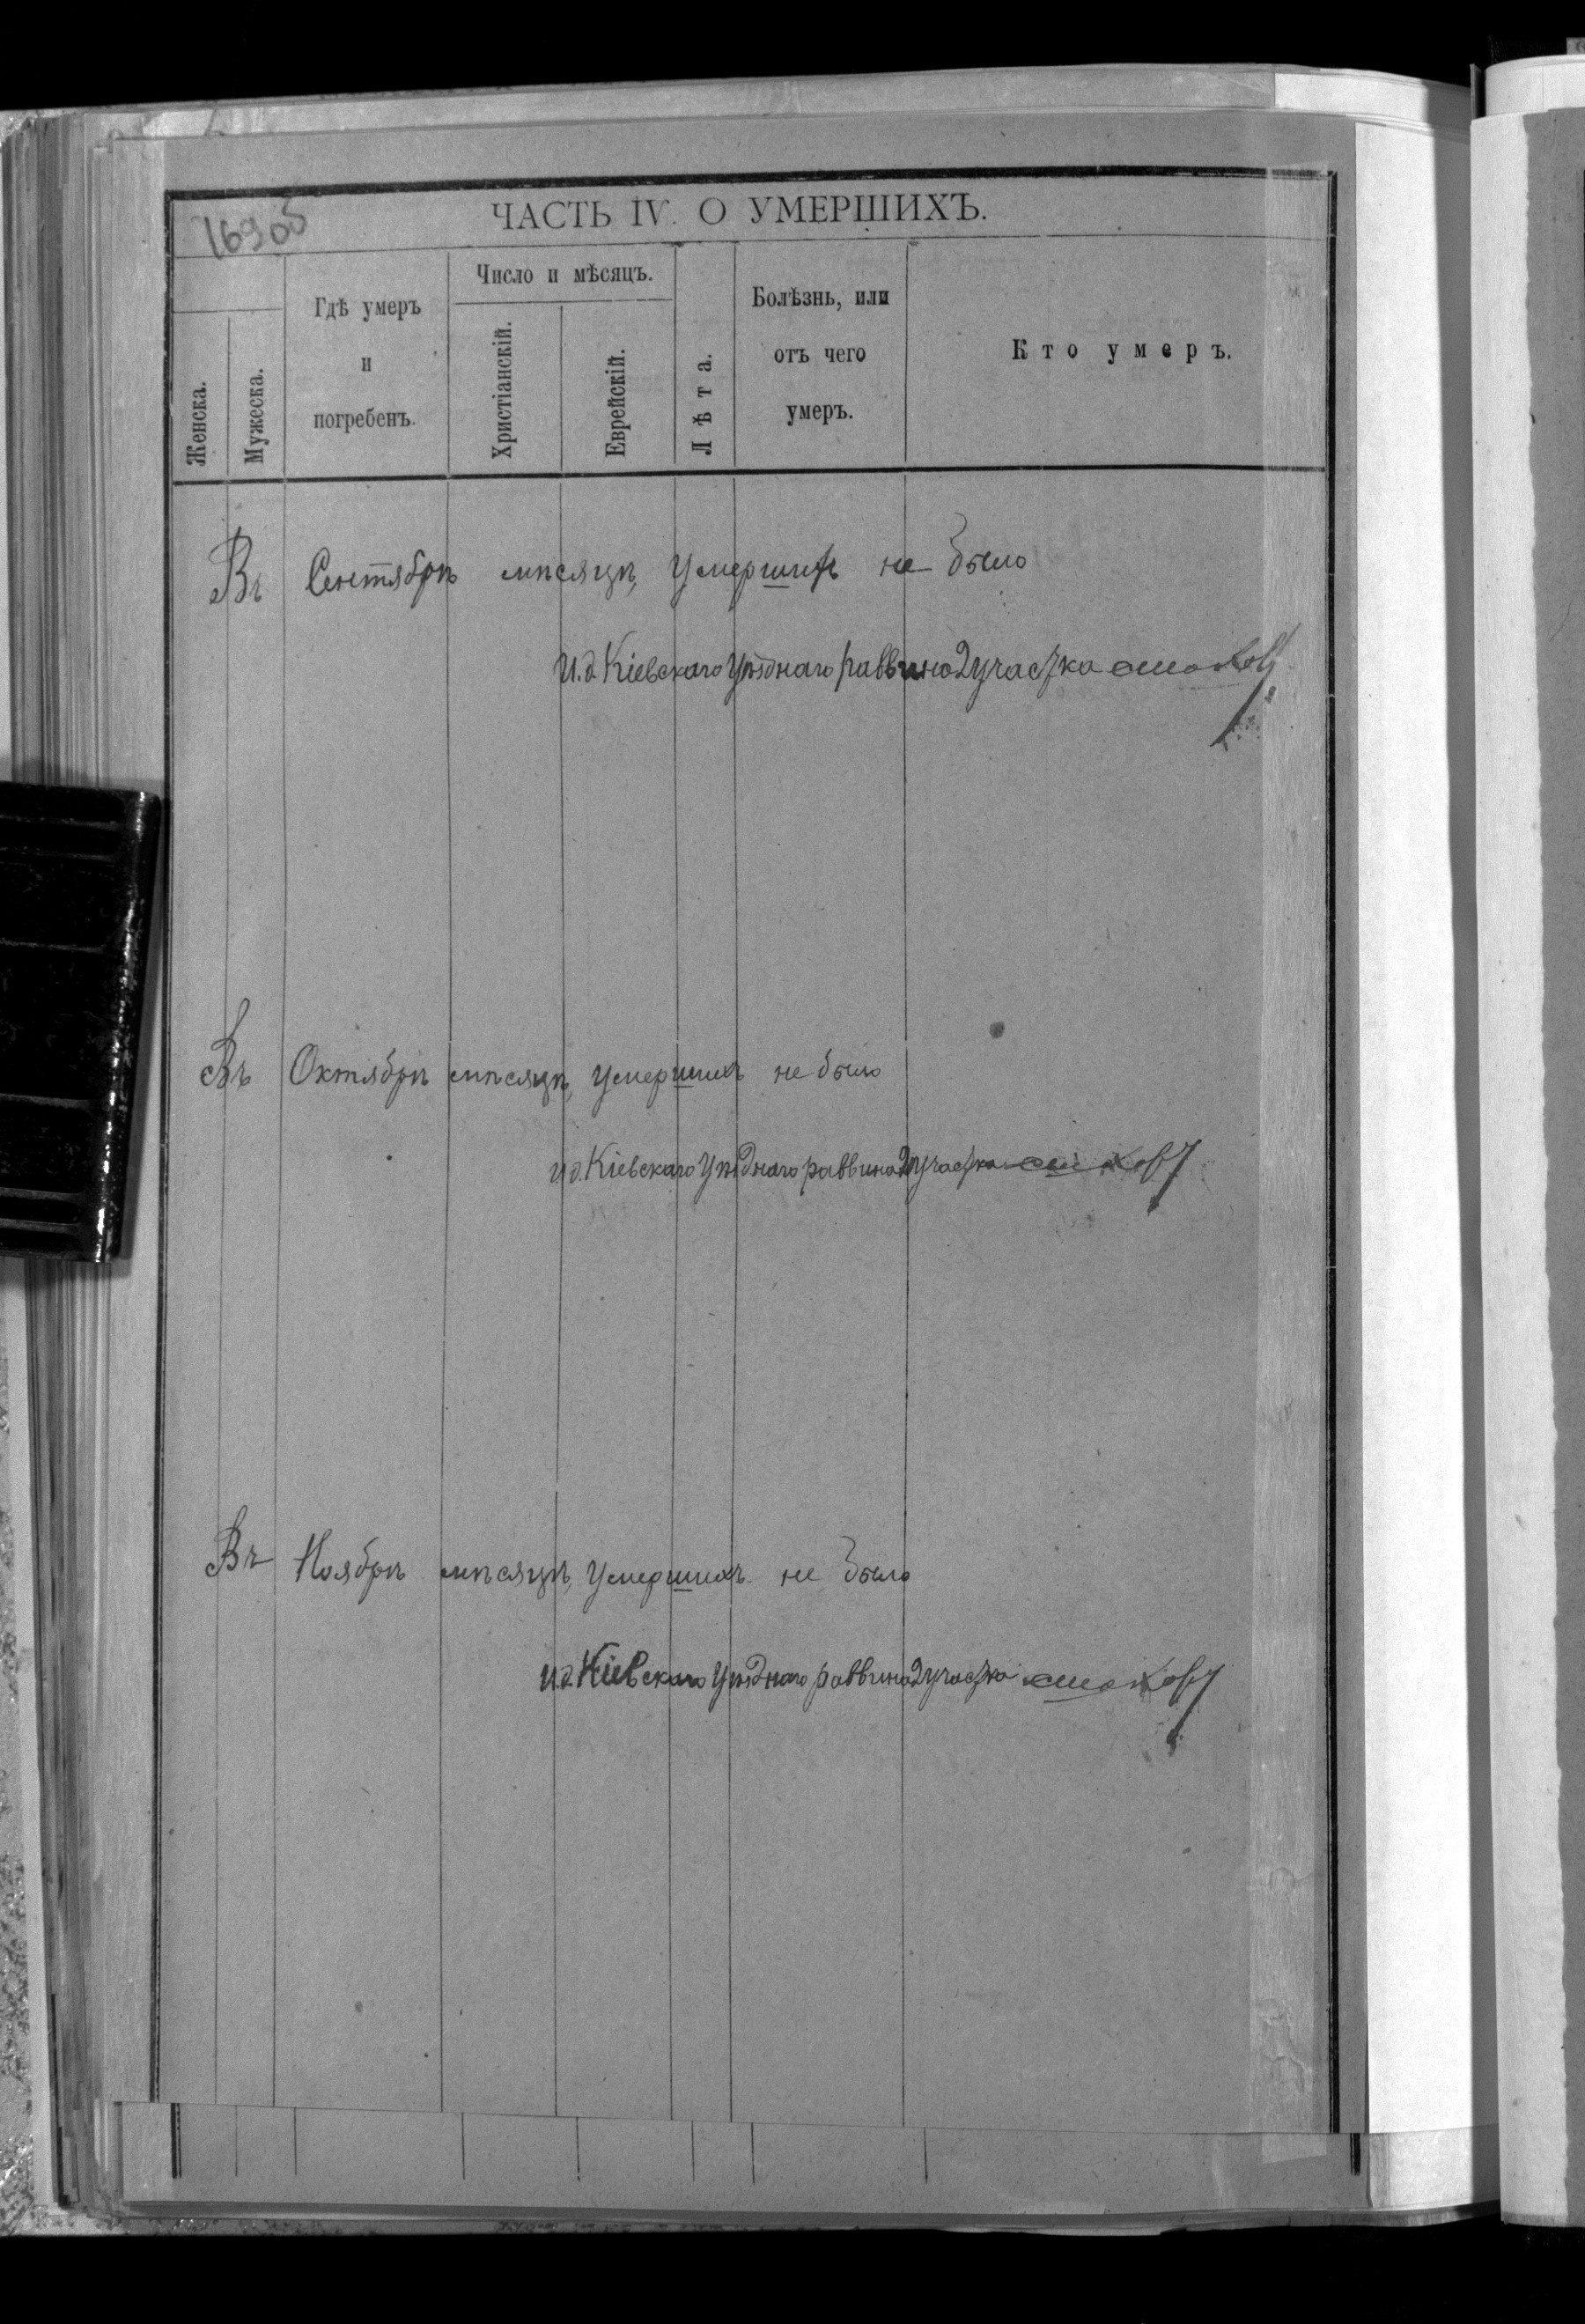 169об
ЧАСТЬ IV. О УМЕРШИХЪ.
Женска.
Мужеска.
Гдѣ умеръ
и
погребенъ.
Число и мѣсяцъ.
Христіанскій.
Еврейскій.
Лѣта.
Болѣзнь, или
отъ чего
умеръ.
Кто умеръ.
Въ Сентябрѣ мѣсяцѣ, умершихъ не было
И.д. Кіевскаго Уѣзднаго раввина 2 участка
Въ Октябрѣ мѣсяцѣ, умершихъ не было
И.д. Кіевскаго Уѣзднаго раввина 2 участка
Въ Ноябрѣ мѣсяцѣ, умершихъ не было
И.д. Кіевскаго Уѣзднаго раввина 2 участка